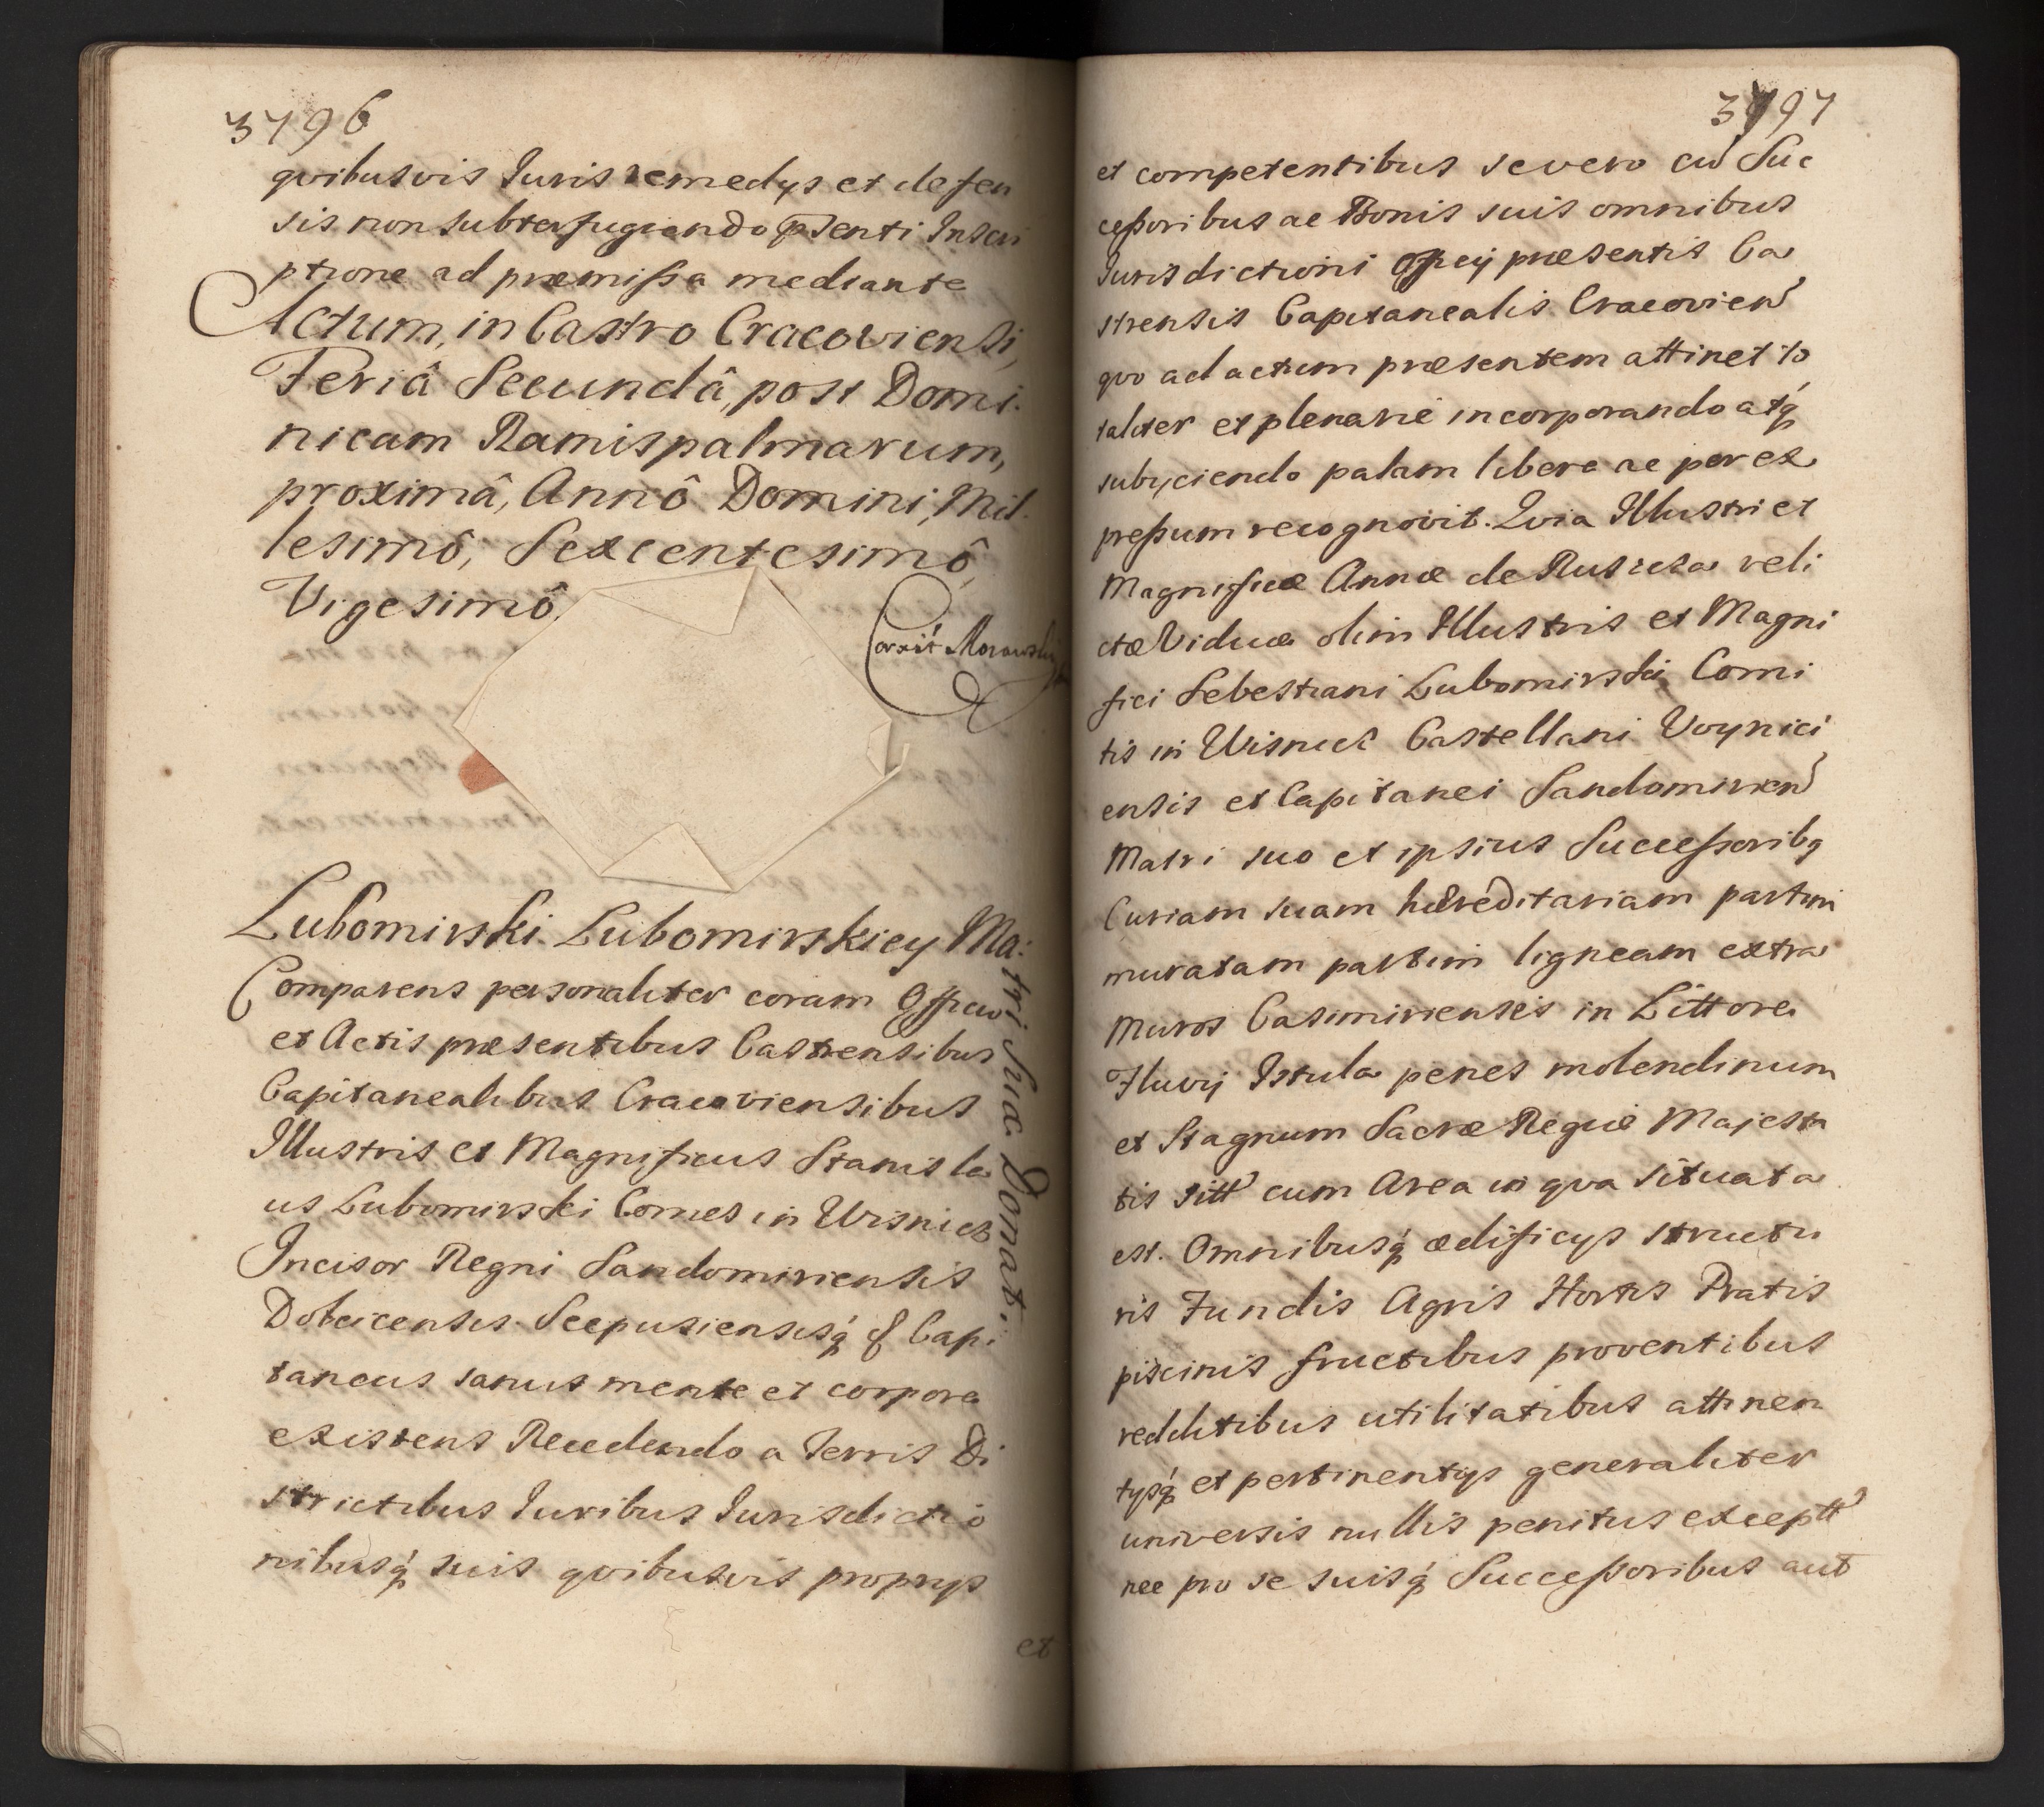 3796
qvibusvis Iuris remedys et defen
sis non subterfugiendo p̄senti Inscri
ptione ad præmissa mediante
Actum, in Castro Cracoviensi,
Feriâ Secundâ, post Domi-
nicam Ramispalmarum,
proximâ, Annô Domini, Mil-
lesimô, Sexcentesimô
Vigesimô.
Corrit Morawski
Lubomirski Lubomirskiey Ma:
tri Suæ Donat.
Comparens personaliter coram Officio
et Actis præsentibus Castrensibus
Capitanealibus Cracoviensibus
Illustris et Magnificus Stanisla
us Lubomirski Comes in Wisnicz
Incisor Regni Sandomiriensis
Dobcicensis Scepusiensisq́ & Capi
taneus sanus mente et corpore
existens Recedendo a Terris Di
strictibus Iuribus Iurisdictio
nibusq́ suis qvibusvis proprys
et
3797
et competentibus se vero cũ Suc
cessoribus ac Bonis suis omnibus
Iurisdictioni Offcij præsentis Ca
strensis Capitanealis Cracovien̄
qvo ad actum præsentem attinet to
taliter et plenarie incorporando atq́
subyciendo palam libere ac per ex
pressum recognovit. Qvia Illustri et
Magnificæ Annæ de Ruscza reli
ctæ Viduæ olim Illustris et Magni
fici Sebestiani Lubomirski Comi
tis in Wisnicz Castellani Voynici
ensis et Capitanei Sandomirien̄
Matri suo et ipsius Successoribq
Curiam suam hæreditariam partim
muratam partim ligneam extra
muros Casimirienses in Littore
Fluvij Istula penes molendinum
et Stagnum Sacræ Regiæ Majesta
tis sitt̄ cum Area in qva situata
est. Omnibusq́ ædificys structu
ris Fundis Agris Hortis Pratis
piscinis fructibus proventibus
redditibus utilitatibus attinen
tysq́ et pertinentys generaliter
universis nullis penitus exceptt̄
nec pro se suisq́ Successoribus aut